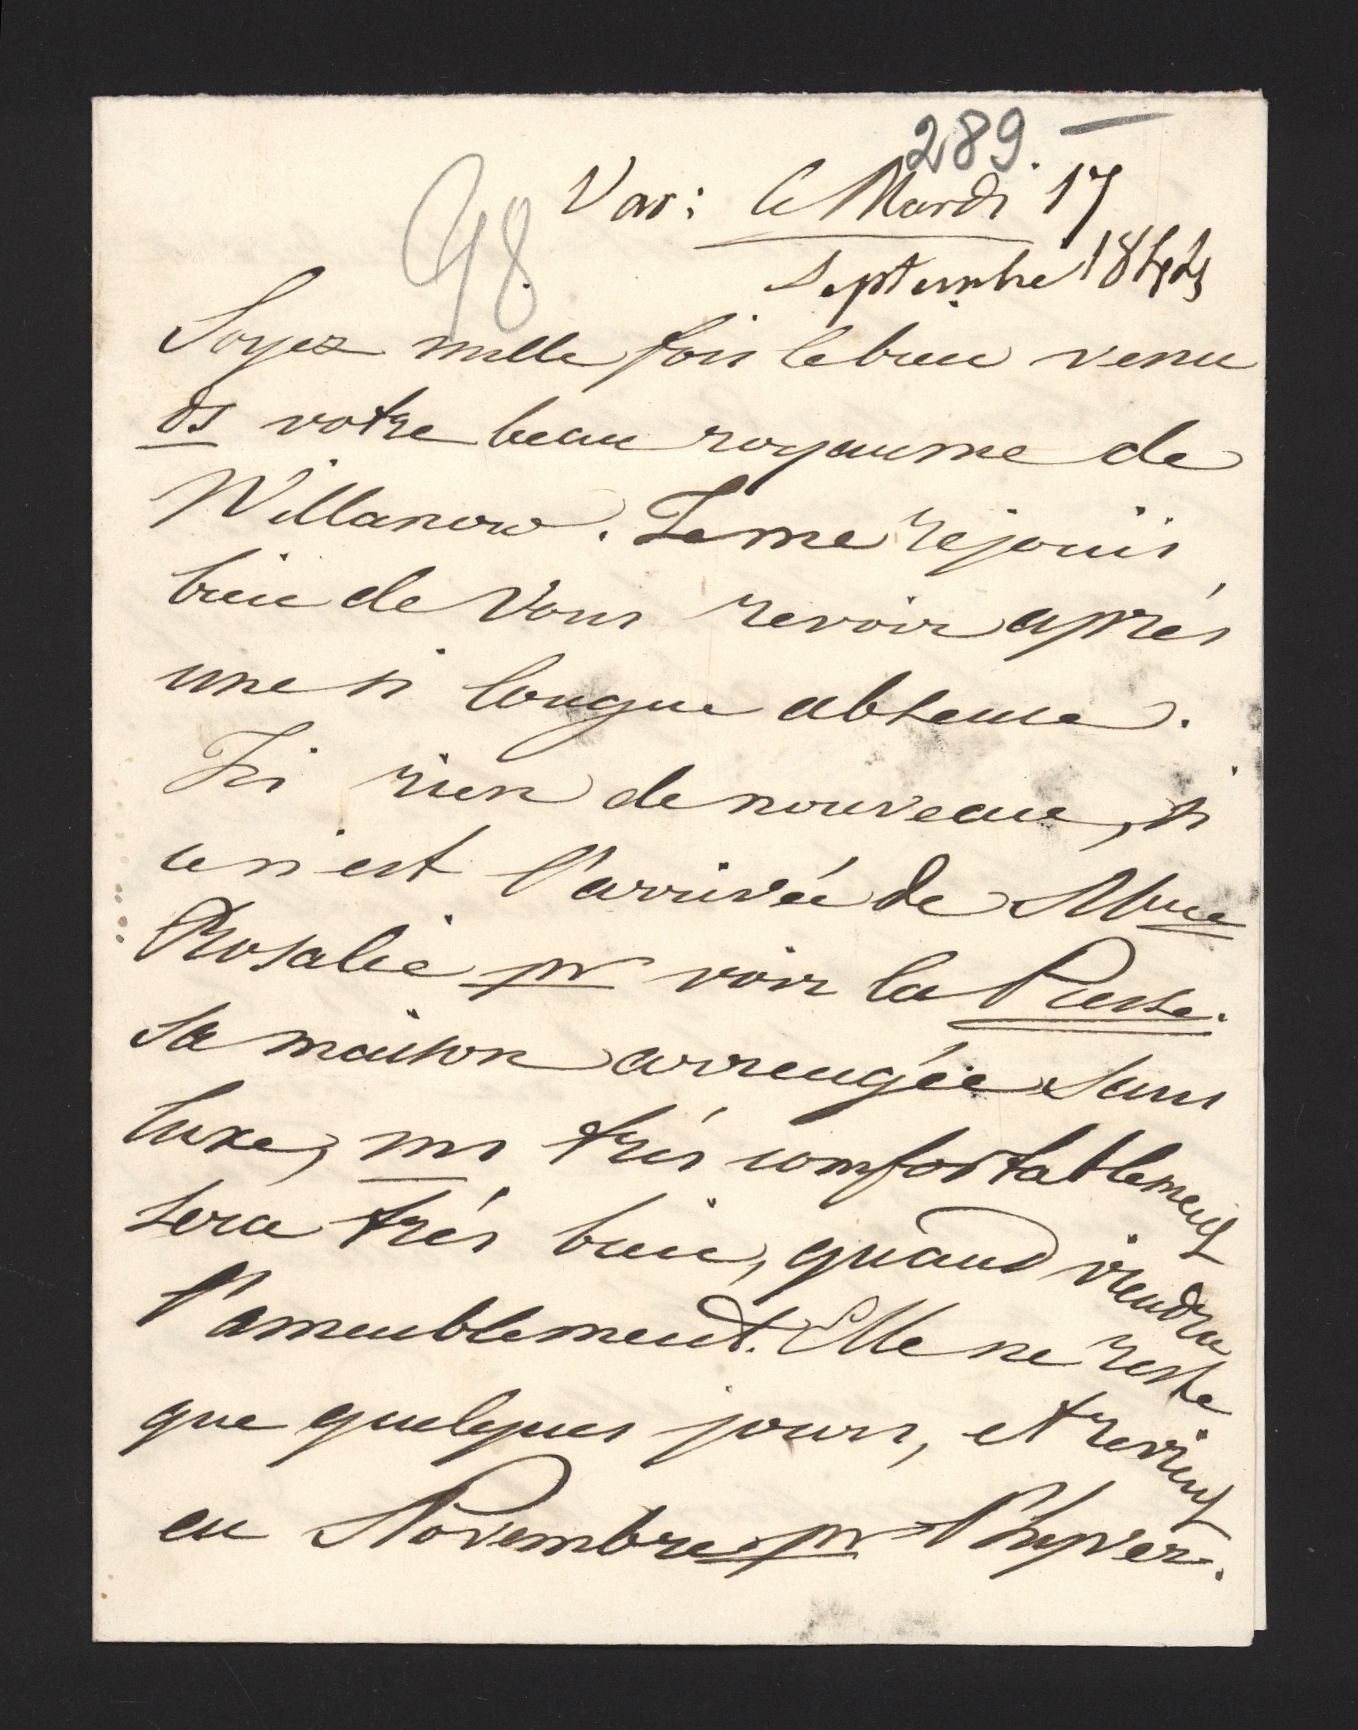 289. —
98.
Var: le Mardi 17
Septembre 1844
Soyez mille fois le bien venu
ds votre beau royaume de
Willanow. Je me rejouis
bien de Vous revoir après
une si longue absence.
Ici rien de nouveau, si
ce n'est l'arrivée de Mme
Rosalie pr voir la Pcesse.
sa maison arrengée sans
luxe, ms très comfortablement
sera très bien, quand viendra
l'ameublement. Elle ne reste
que quelques jours, et revient
en Novembre pr l'hyver.